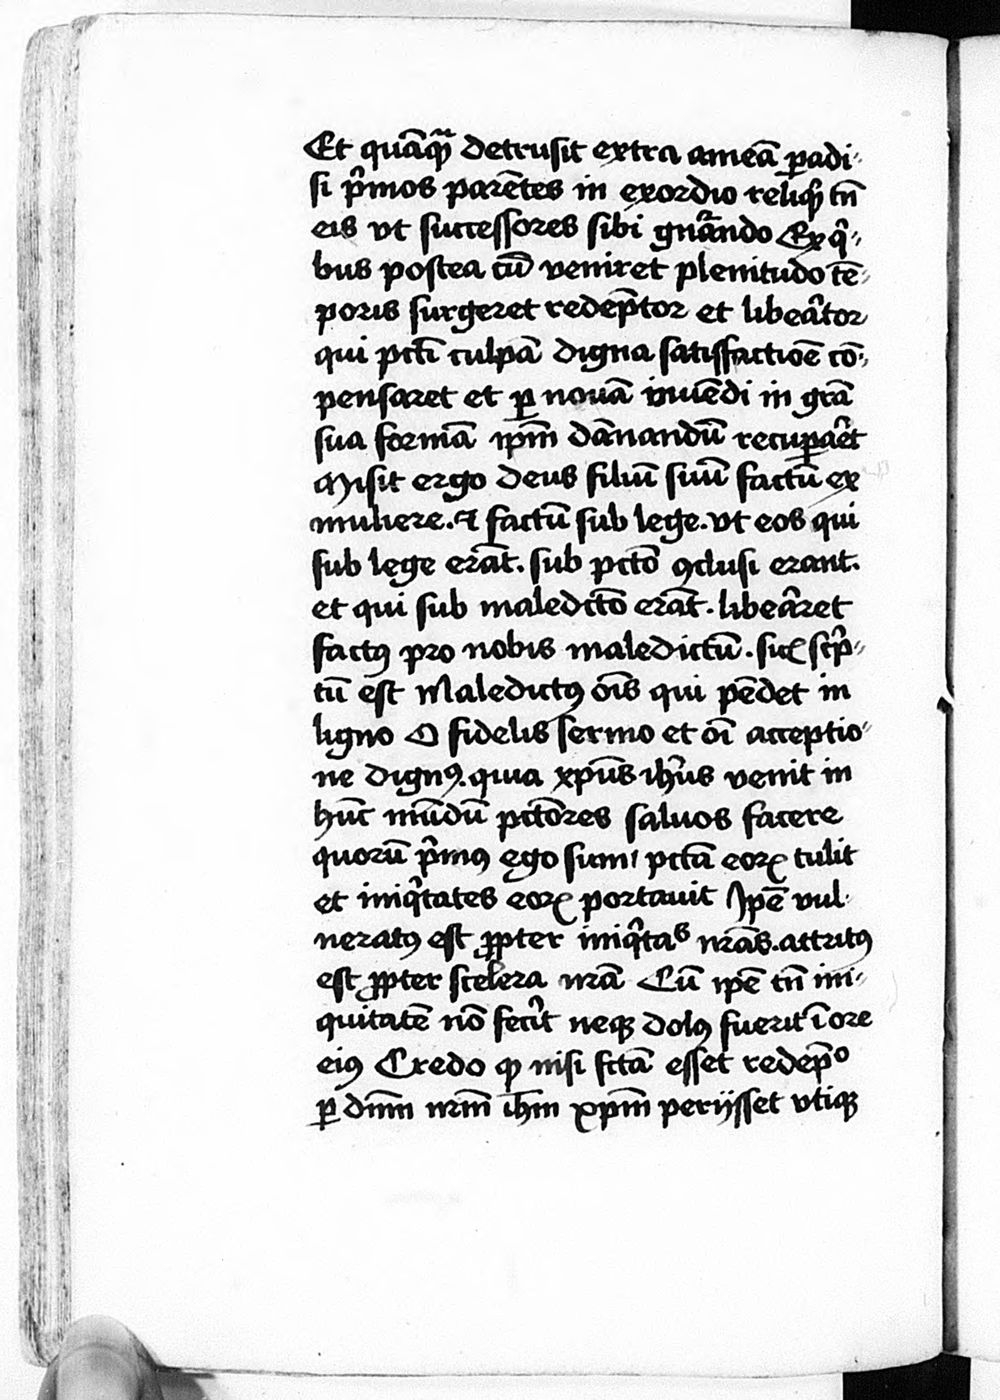 Et quāqꝫ detrusit extra ameā ꝑadi-
si pͥmos parētes in exordio reliqͥ tn̄
eis vt successores sibi gnᷓando Ex qͥ-
bus postea cū veniret plenitudo tē-
poris surgeret redēptor et libeᷓtor
qui pcti culpā digna satisfactiōe cō-
pensaret et ꝑ nouā viuēdi in grā
sua formā ip̄m dānandū recuꝑaᷓet
Misit ergo deus filiū suū factū ex
muliere. ⁊ factū sub lege. vt eos qui
sub lege erāt. sub pctō ꝯclusi erant.
et qui sub maledictō erāt. libeᷓret
factꝰ pro nobis maledictū. sic̄ scͥp-
tū est Maledictꝰ oīs qui pēdet in
ligno O fidelis sermo et oī acceptio-
ne dignꝰ. quia xpūs ihūs venit in
hūc mūdū pctōres saluos facere
quorū pͥmꝰ ego sum/ pctā eoꝝ tulit
et iniqͥtates eoꝝ portauit Ipē vul-
neratꝰ est ꝓpter iniqͥtas nrās. attritꝰ
est ꝓpter scelera nrā Cū ipē tn̄ ini-
quitatē nō fecͥt neqꝫ dolꝰ fuerit ī ore
eiꝰ Credo ꝙ nisi fctā esset redēpͦ
ꝑ dn̄m nrm̄ ih̄m xp̄m perijsset vtiqꝫ